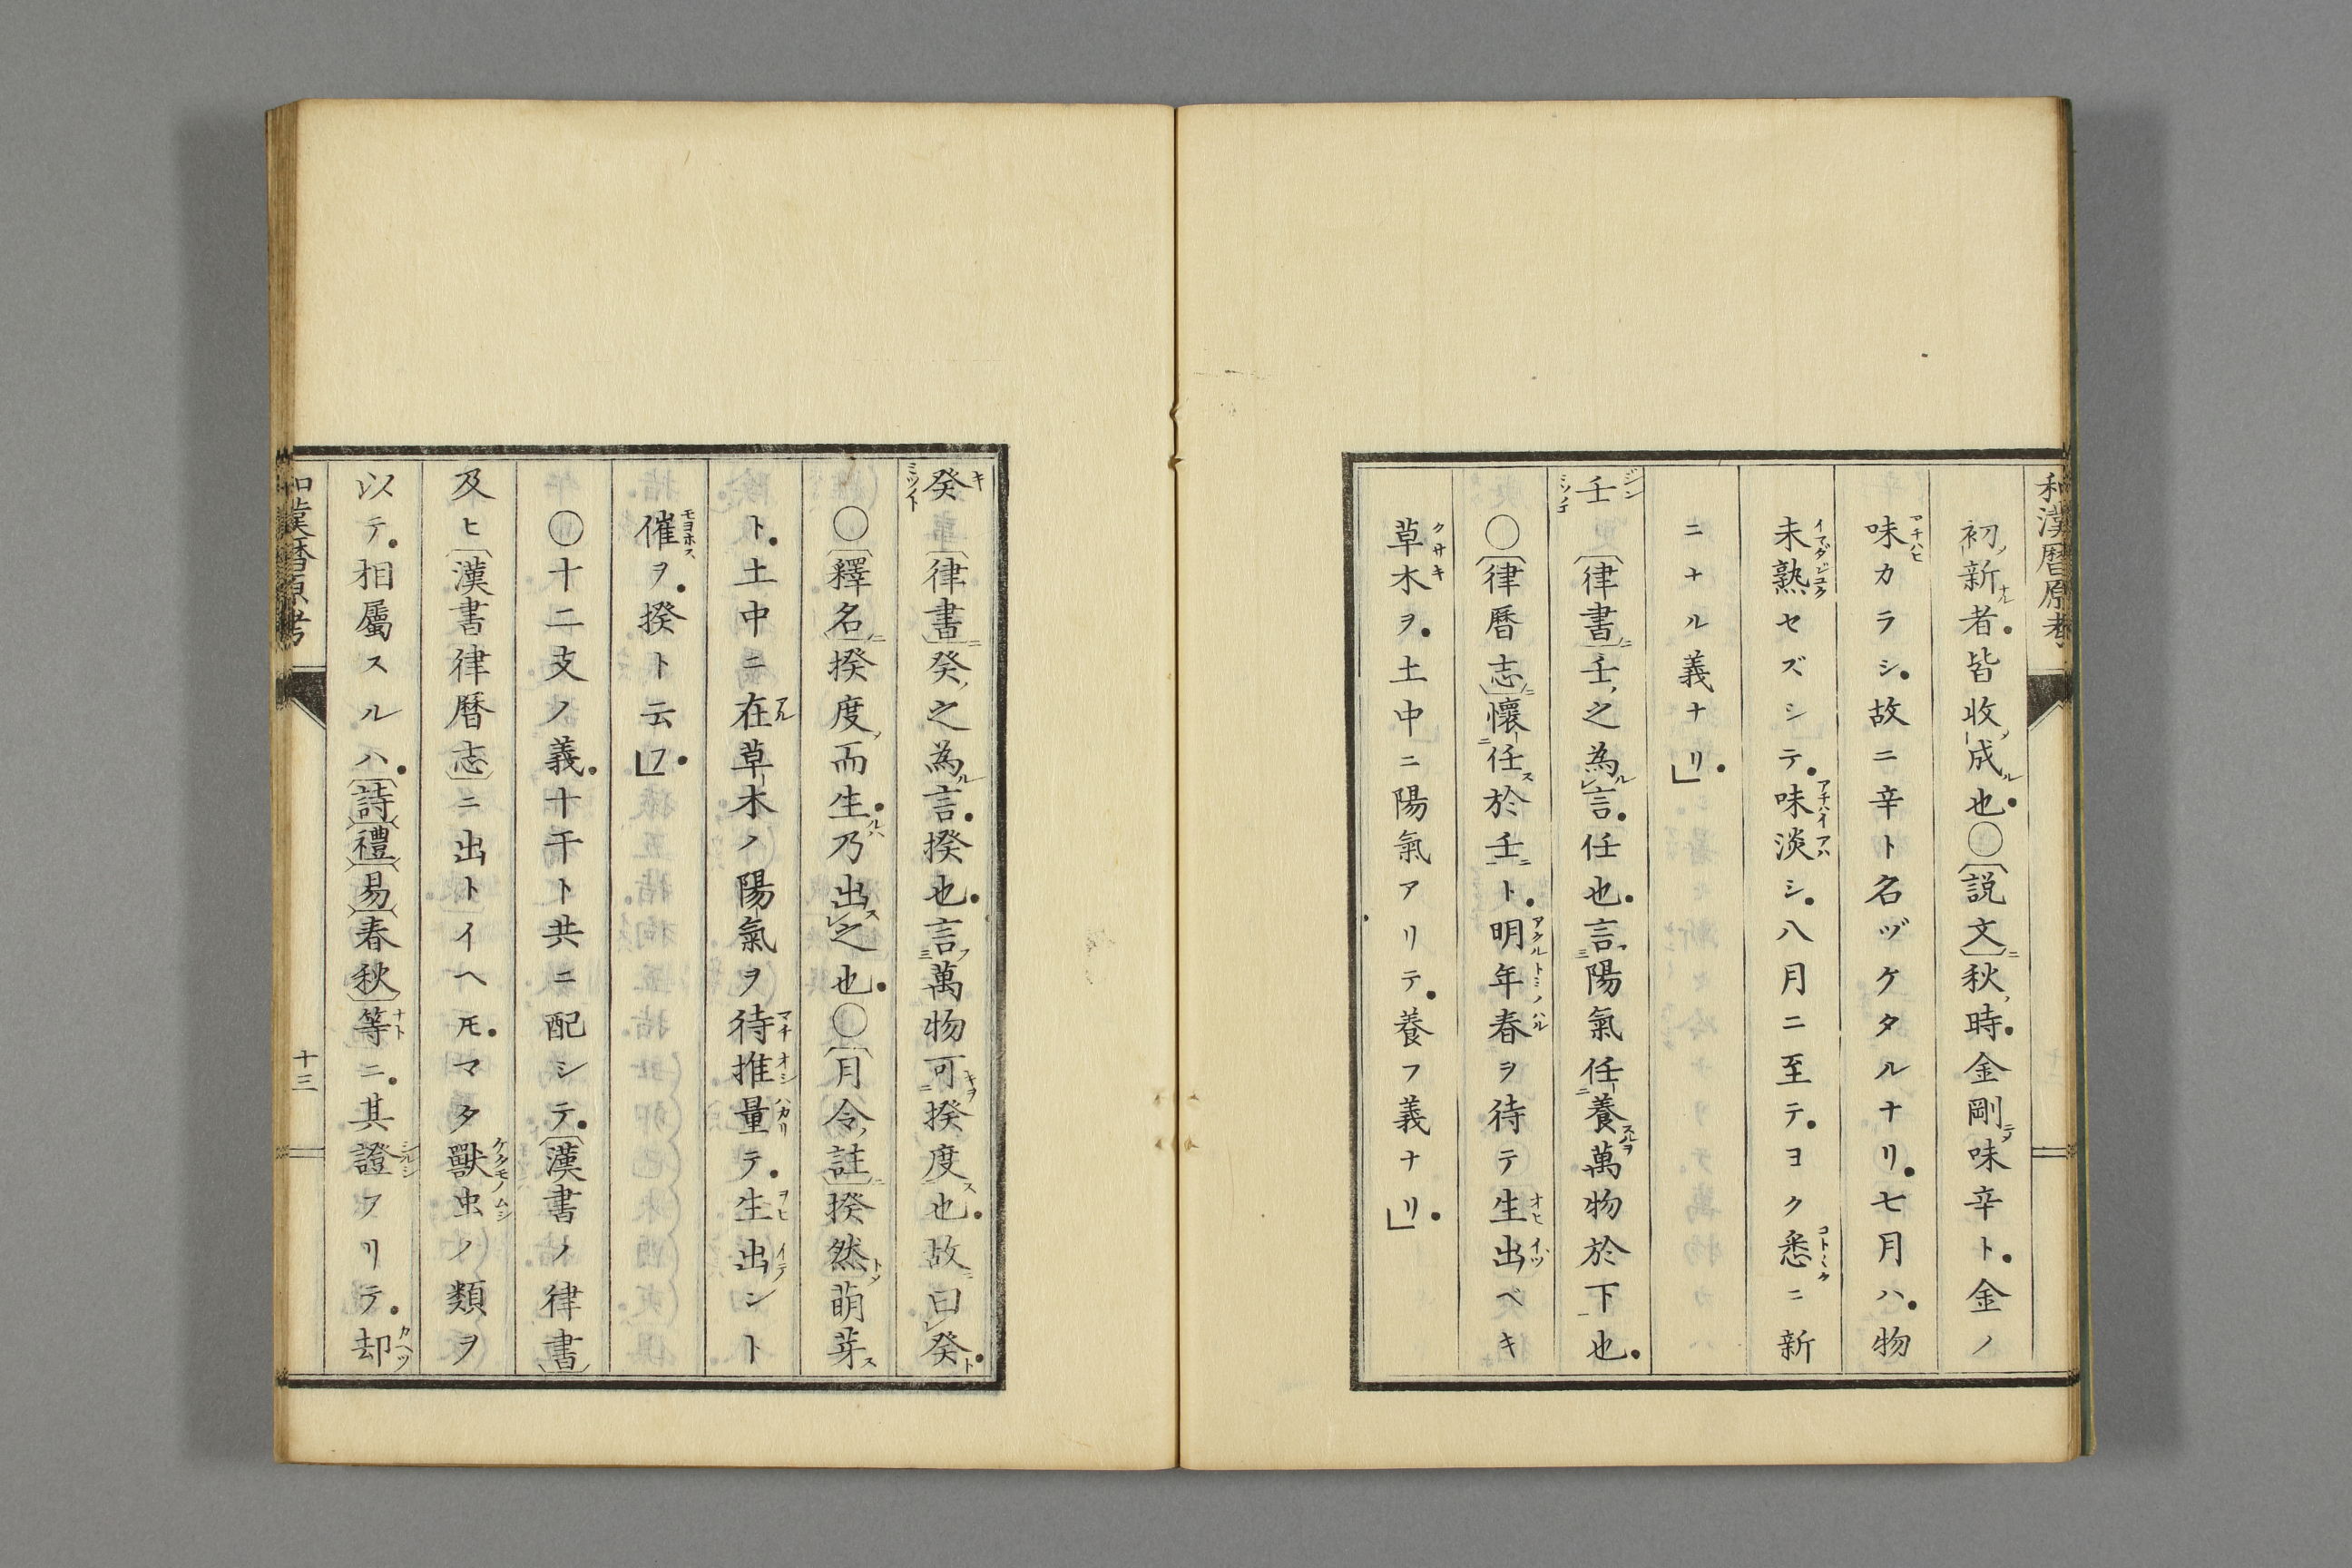 和漢暦原考
初新者。皆收成也。〇〔説文〕秋時。金剛味辛ト。金ノ
味カラシ。故ニ辛ト名ヅケタルナリ。七月ハ。物
未熟セズシテ。味淡シ。八月ニ至テ。ヨク悉ニ新
ニナル義ナリ。」
壬〔律書〕壬之為言。任也。言陽氣任養萬物於下也。
〇〔律暦志〕懷任於壬ト。明年春ヲ待テ生出ベキ
草木ヲ。土中ニ陽氣アリテ。養フ義ナリ。」
癸〔律書〕癸之為言。揆也。言萬物可揆度也。故曰癸。
〇〔釋名〕揆度而生。乃出之也。〇〔月令註〕揆然萌芽
ト。土中ニ在草木ノ陽氣ヲ待推量テ。生出ント
催ヲ。揆ト云フ。」
〇十二支ノ義。十干ト共ニ配シテ。〔漢書ノ律書〕
及ヒ〔漢書律暦志〕ニ出トイヘ𪜈。マタ獸虫ノ類ヲ
以テ。相屬スルハ。〔詩〕〔禮〕〔易〕〔春秋〕等ニ。其證フリテ。却
和漢暦原考
十三